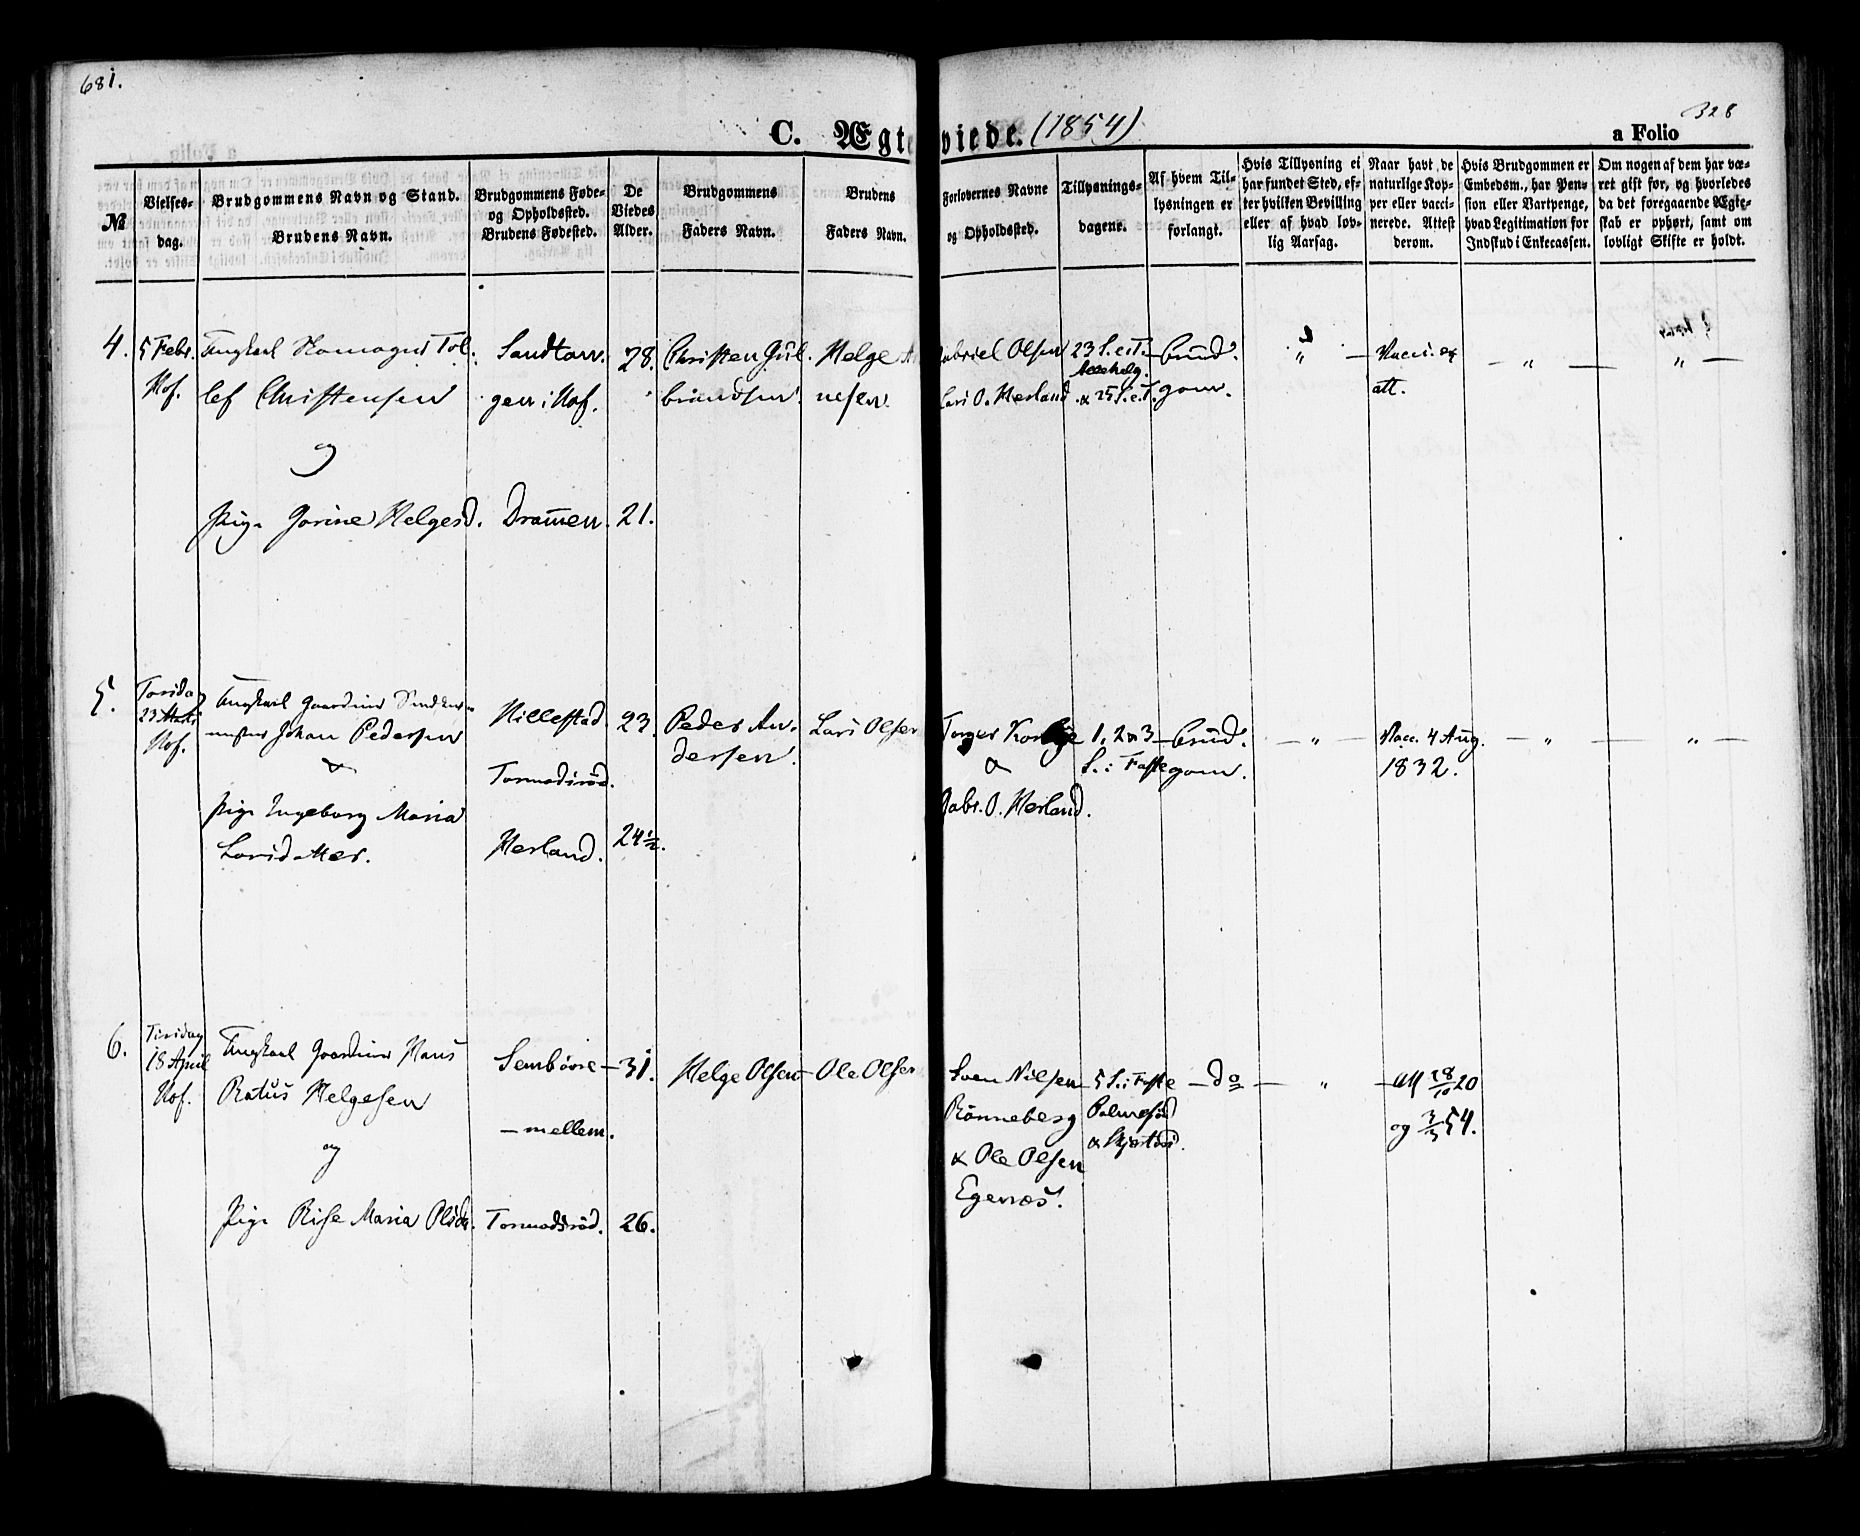 681.
328
C. Ægteviede. (1854)
a Folio
№
Vielses-
dag.
Brudgommens Navn og Stand.
Brudens Navn.
Brudgommens Føde-
og Opholdssted.
Brudens Fødested.
De
Viedes
Alder.
Brudgommens
Faders Navn.
Brudens
Faders Navn.
Forlovernes Navne
og Opholdssted.
Tillysnings-
dagene.
Af hvem Til-
lysningen er
forlangt.
Hvis Tillysning ei
har fundet Sted, ef-
ter hvilken Bevilling
eller af hvad lov-
lig Aarsag.
Naar havt de
naturlige Kop-
per eller vacci-
nerede. Attest
derom.
Hvis Brudgommen er
Embedsm., har Pen-
sion eller Vartpenge,
hvad Legitimation for
Indskud i Enkecassen.
Om nogen af dem har væ-
ret gift før, og hvorledes
da det foregaaende Ægte-
skab er ophørt, samt om
lovligt Skifte er holdt.
4. 5 Febr. Ungkarl Tol- 28. Christen Gul- Helge Gabriel Olsen 23 S. e. T. Brud-
Hof. lef Christensen gen i Hof. brandsen. nesen. Lars O. Herland & 25 S. e. T. gom. att.
og
Pige Jorine Helgesd. Dramen. 21.
5. Torsdag Ungkarl Gaardmd
23 Hillestad 23. Peder An- Lars Olsen 1, 2 & 3 Brud- " Vacc. 4 Aug. " "
Hof. Johan Pedersen dersen. & S. i Faste gom. 1832.
&
Tormodsrød.
Pige Ingeborg Maria 24½. Gabr. O. Herland.
Larsdatter. Herland.
6. Tirsdag Ungkarl Gaardmd Hans
18 April Sembøvre 31. Helge Olsen Ole Olsen Sven Nilsen 5 S. i Faste do " att 18/10 20
Hof. Ratus Helgesen Rønneberg Palmesød og 3/3 54.
mellem. & Skjærtorsd.
og & Ole Olsen
Egenæs.
Pige Rise Maria Olsdr. Tormodsrød. 26.